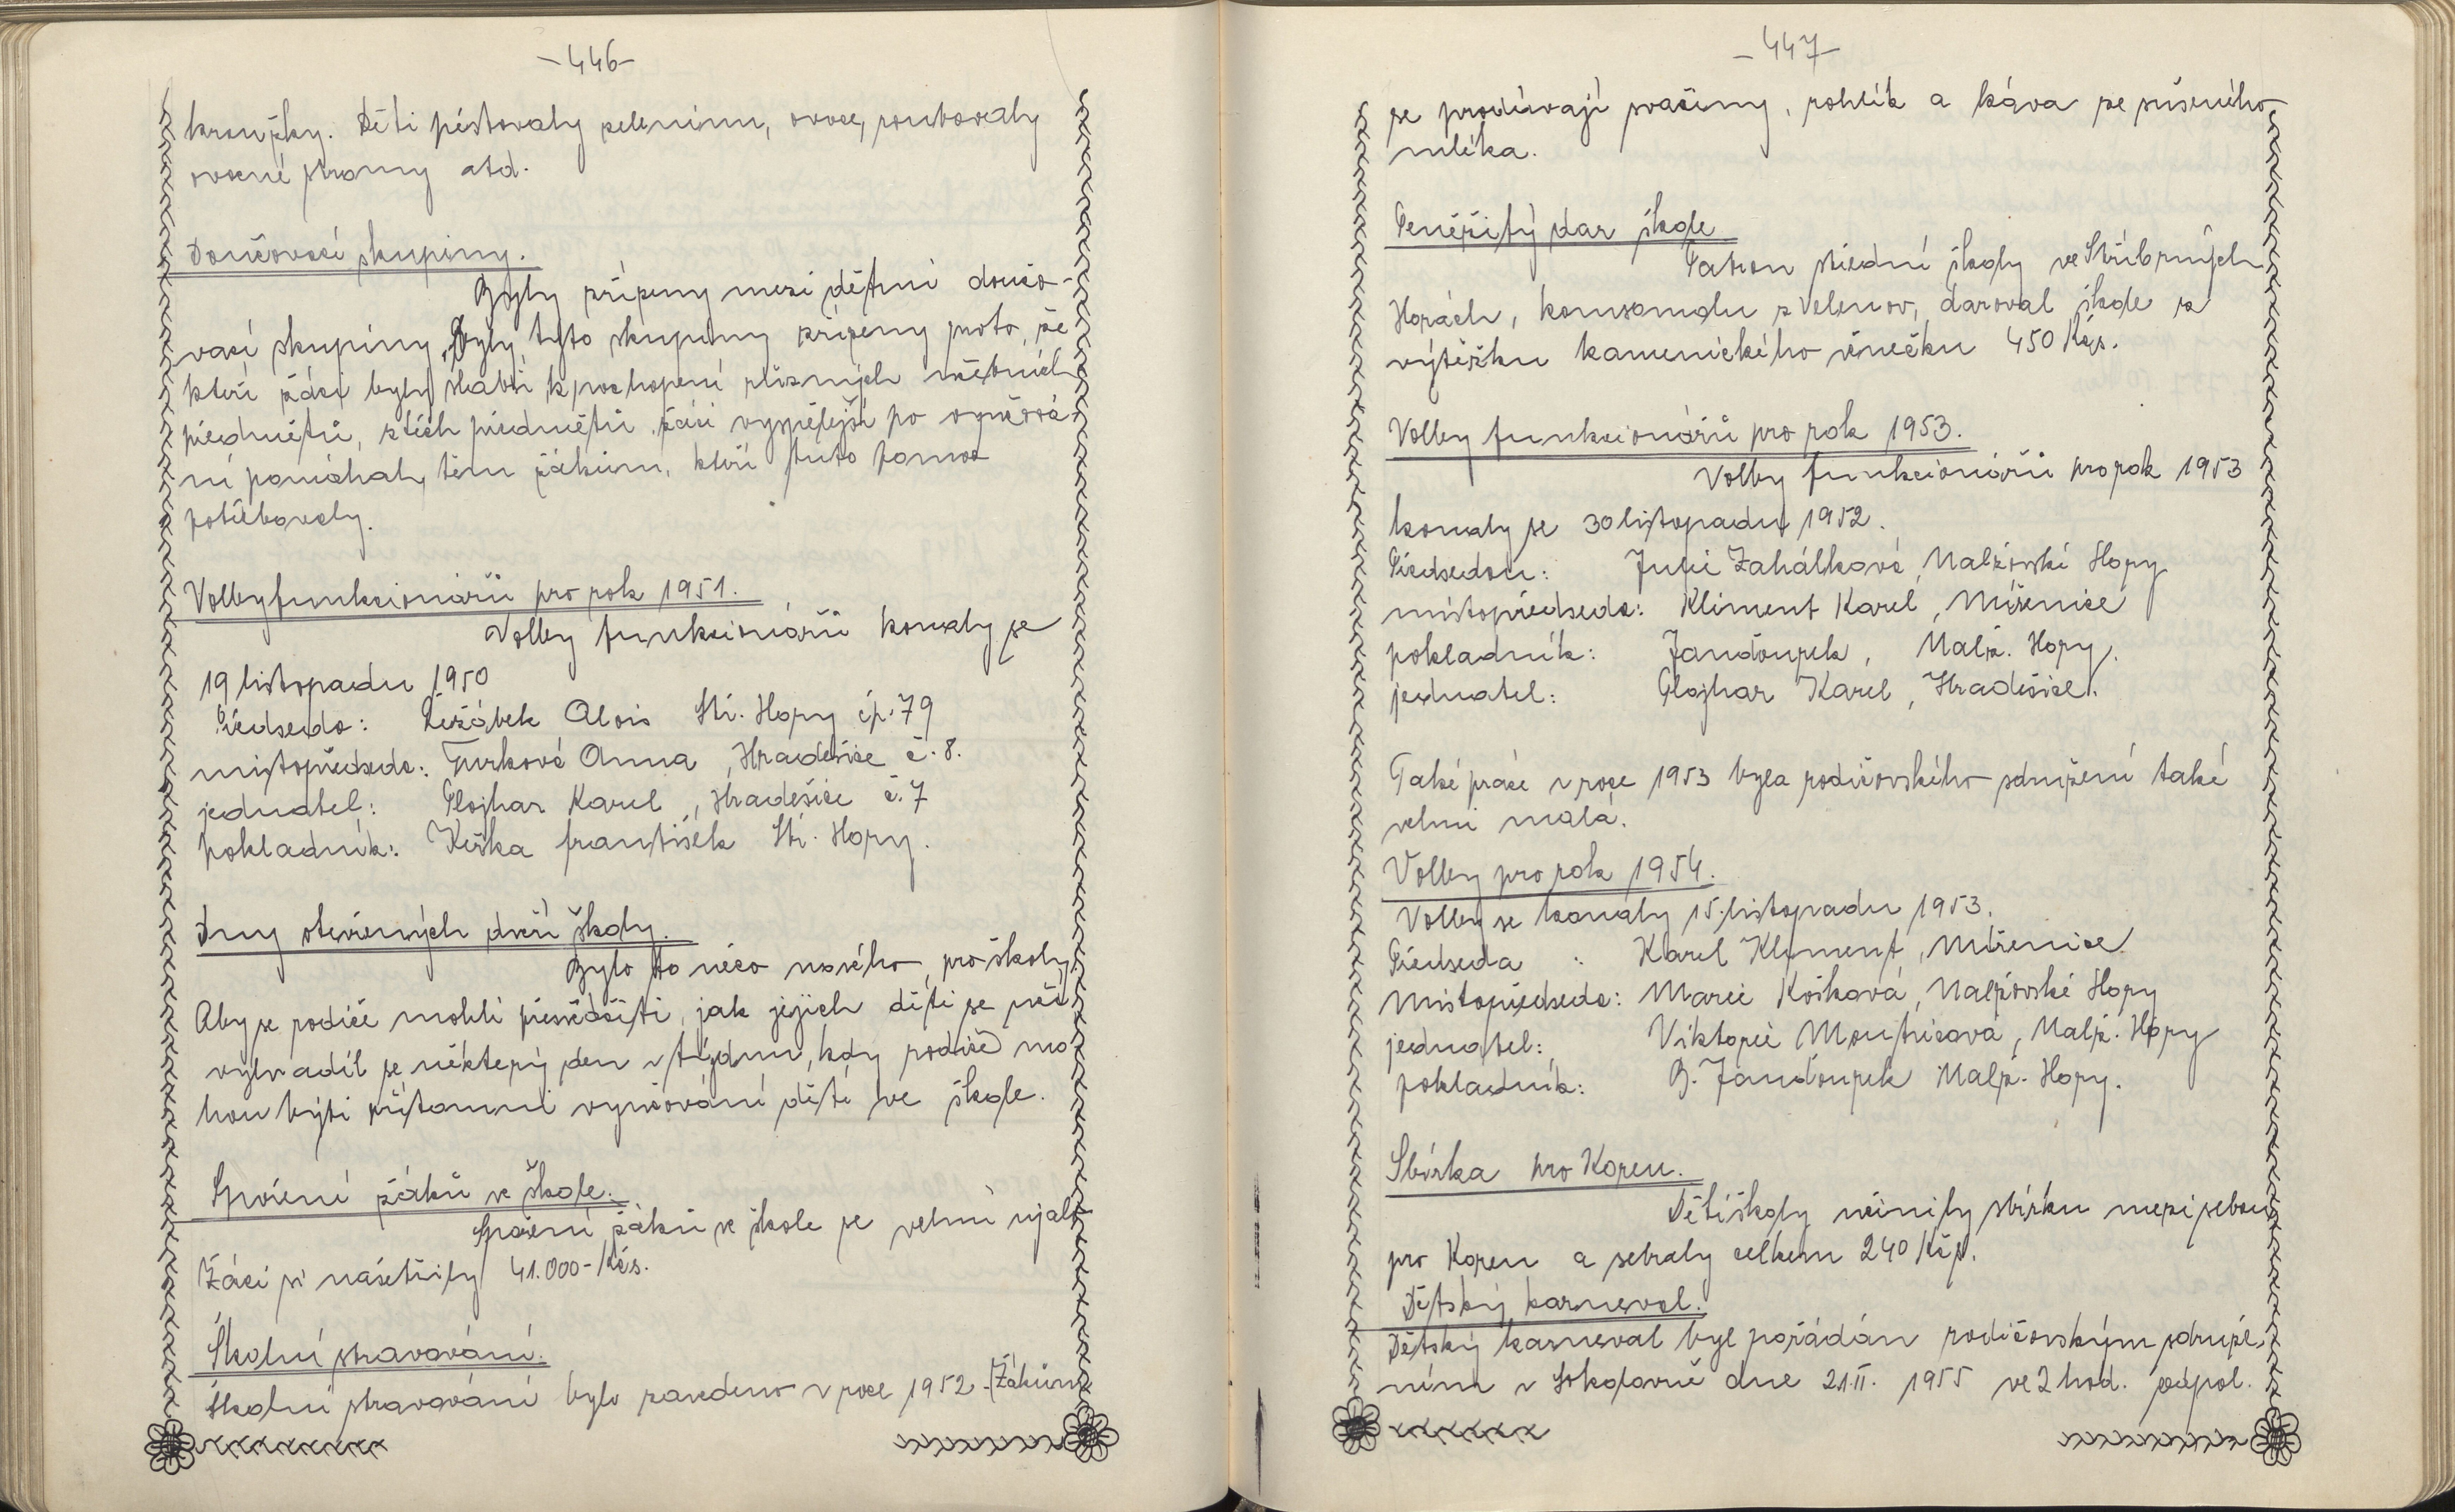 -446-
kroužky. Děti pěstovaly zeleninu, ovoce, roubovaly
ovocné stromy atd.
Doučovací skupiny.
Byly zřízeny mezi dětmi doučo-
vací skupiny. Byly tyto skupiny zřízeny proto, že
kteří žáci byly slabší k pochopení různých učebních
předmětů, z těch předmětů žáci vyspělejší po vyučová-
ní pomáhaly těm žákům, kteří tuto pomoc
potřebovaly.
Volby funkcionářů pro rok 1951.
Volby funkcionářů konaly se
19 listopadu 1950
Předseda: Řežábek Alois Stř. Hory čp. 79
místopředseda: Turková Anna, Hradešice č. 8.
jednatel: Plojhar Karel, Hradešice č. 7
pokladník: Keška František Stř. Hory.
Dny otevřených dveří školy.
Bylo to něco nového pro školy.
Aby se rodiče mohli přesvědčiti, jak jejich děti se učí
vyhradil se některý den v týdnu, kdy rodiče mo
hou býti přítomni vyučování dětí ve škole.
Spoření žáků ve škole.
Spoření žáků ve škole se velmi ujalo
Žáci si našetřily 41.000- Kčs.
Školní stravování.
Školní stravování bylo zavedeno v roce 1952. Žákům
-447-
se prodávají svačiny, rohlík a káva ze sušeného
mléka.
Peněžitý dar škole
Patron střední školy ve Stříbrných
Horách, komunálu z Velenov, daroval škole z
výtěžku kamenického věnečku 450 Kčs.
Volby funkcionářů pro rok 1953.
Volby funkcionářů pro rok 1953
konaly se 30 listopadu 1952.
Předsedou: Julie Zahálková, Nalžovské Hory
místopředseda: Kliment Karel, Miřenice
pokladník: Jandourek, Nalž. Hory.
jednatel: Plojhar Karel, Hradešice.
Také práce v roce 1953 byla rodičovského sdružení také
velmi malá.
Volby pro rok 1954.
Volby se konaly 15. listopadu 1953.
Předseda : Karel Kliment, Miřenice
Místopředseda: Marie Košková, Nalžovské Hory
jednatel: Viktorie Moutvicová, Nalž. Hory
pokladník: B. Jandourek Nalž. Hory.
Sbírka pro Koreu.
Děti školy učinily sbírku mezi sebou
pro Koreu a sebraly celkem 240 Kčs.
Dětský karneval.
Dětský karneval byl pořádán rodičovským sdruže-
ním v Sokolovně dne 21.II. 1955 ve 2 hod. odpol.